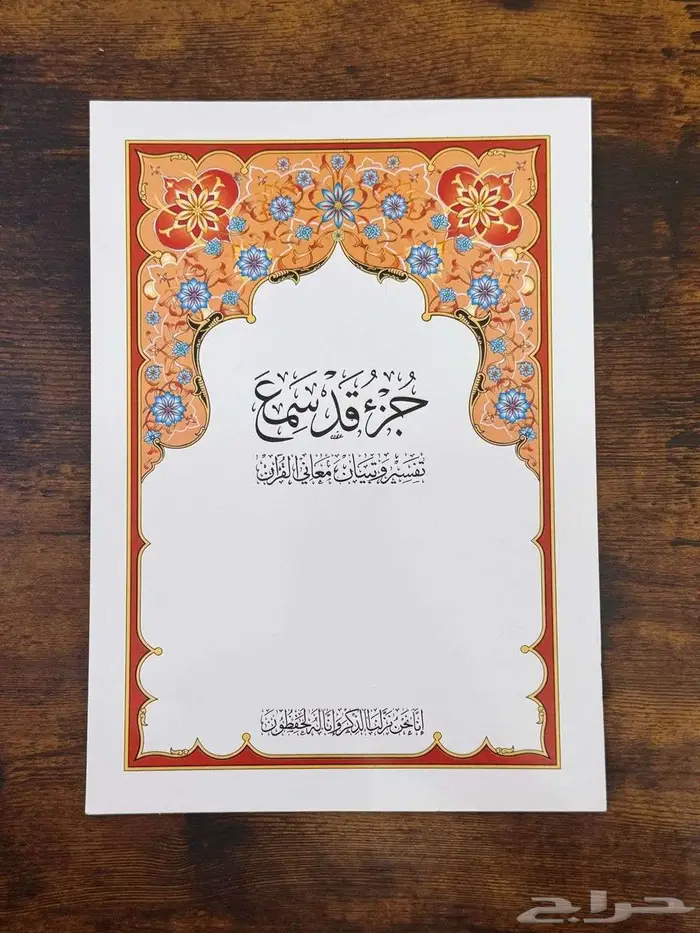 جُزْءُ قَدْ سَمِعَ
تفسير وتبيان معاني القرآن
إنا نحن نزلنا الذكر وإنا له لحفظون
حراج